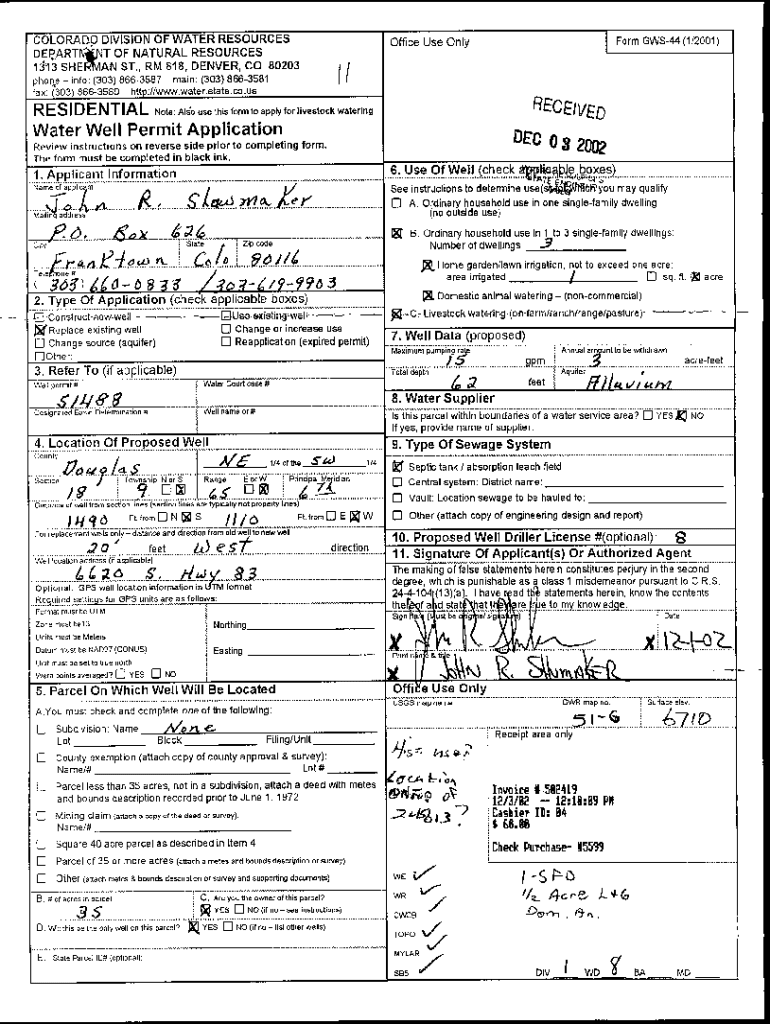 COLORADO DIVISION OF WATER RESOURCES
DEPARTMENT OF NATURAL RESOURCES
1313 SHERMAN ST., RM 818, DENVER, CO 80203
phone – info: (303) 866-3587 main: (303) 866-3581
fax: (303) 866-3589 http://www.water.state.co.us
11
Office Use Only
Form GWS-44 (1/2001)
RECEIVED
DEC 03 2002
RESIDENTIAL Note: Also use this form to apply for livestock watering
Water Well Permit Application
Review instructions on reverse side prior to completing form.
The form must be completed in black ink.
1. Applicant Information
Name of applicant
John R. Shawmaker
Mailing address
P.O. Box 626
City State Zip code
Franktown Colo 80116
Telephone #
( 303: 660-0833 / 303-619-9903
2. Type Of Application (check applicable boxes)
Construct new well Use existing well
Replace existing well Change or increase use
Change source (aquifer) Reapplication (expired permit)
Other:
3. Refer To (if applicable)
Well permit # Water Court case #
51488
Designated Basin Determination # Well name or #
4. Location Of Proposed Well
County
Douglas NE 1/4 of the SW 1/4
Section Township N or S Range E or W Principal Meridian
18 9 65 6th
Distance of well from section lines (section lines are typically not property lines)
1490 Ft. from N S 1110 Ft. from E W
For replacement wells only – distance and direction from old well to new well
20' feet West direction
Well location address (if applicable)
6620 S. Hwy 83
Optional: GPS well location information in UTM format
Required settings for GPS units are as follows:
Format must be UTM
Zone must be 13 Northing
Units must be Meters
Datum must be NAD27 (CONUS) Easting
Unit must be set to true north
Were points averaged? YES NO
5. Parcel On Which Well Will Be Located
A. You must check and complete one of the following:
Subdivision: Name None
Lot Block Filing/Unit
County exemption (attach copy of county approval & survey):
Name/# Lot #
Parcel less than 35 acres, not in a subdivision, attach a deed with metes
and bounds description recorded prior to June 1, 1972
Mining claim (attach a copy of the deed or survey):
Name/#
Square 40 acre parcel as described in Item 4
Parcel of 35 or more acres (attach a metes and bounds description or survey)
Other (attach metes & bounds description or survey and supporting documents)
B. # of acres in parcel C. Are you the owner of this parcel?
35 YES NO (if no – see instructions)
D. Will this be the only well on this parcel? YES NO (if no – list other wells)
E. State Parcel ID# (optional):
6. Use Of Well (check applicable boxes)
See instructions to determine use(s) for which you may qualify
A. Ordinary household use in one single-family dwelling
(no outside use)
B. Ordinary household use in 1 to 3 single-family dwellings:
Number of dwellings 3
Home garden/lawn irrigation, not to exceed one acre:
area irrigated 1 sq. ft. acre
Domestic animal watering – (non-commercial)
C. Livestock watering (on farm/ranch/range/pasture)
7. Well Data (proposed)
Maximum pumping rate Annual amount to be withdrawn
15 gpm 3 acre-feet
Total depth Aquifer
62 feet Alluvium
8. Water Supplier
Is this parcel within boundaries of a water service area? YES NO
If yes, provide name of supplier.
9. Type Of Sewage System
Septic tank / absorption leach field
Central system: District name:
Vault: Location sewage to be hauled to:
Other (attach copy of engineering design and report)
10. Proposed Well Driller License #(optional): 8
11. Signature Of Applicant(s) Or Authorized Agent
The making of false statements herein constitutes perjury in the second
degree, which is punishable as a class 1 misdemeanor pursuant to C.R.S.
24-4-104 (13)(a). I have read the statements herein, know the contents
thereof and state that they are true to my knowledge.
Sign here (Must be original signature) Date
X X 12-1-02
Print name & title
X JOHN R. SHUMAKER
Office Use Only
USGS map name DWR map no. Surface elev.
51-G 6710
Receipt area only
Hist use?
Location
on top of
245813?
Invoice # 502419
12/3/02 -- 12:10:09 PM
Cashier ID: 04
$ 60.00
Check Purchase- #5599
WE
WR
CWCB
TOPO
MYLAR
SB5
1-SFD
1/2 Acre L+G
Dom. An.
DIV 1 WD 8 BA MD